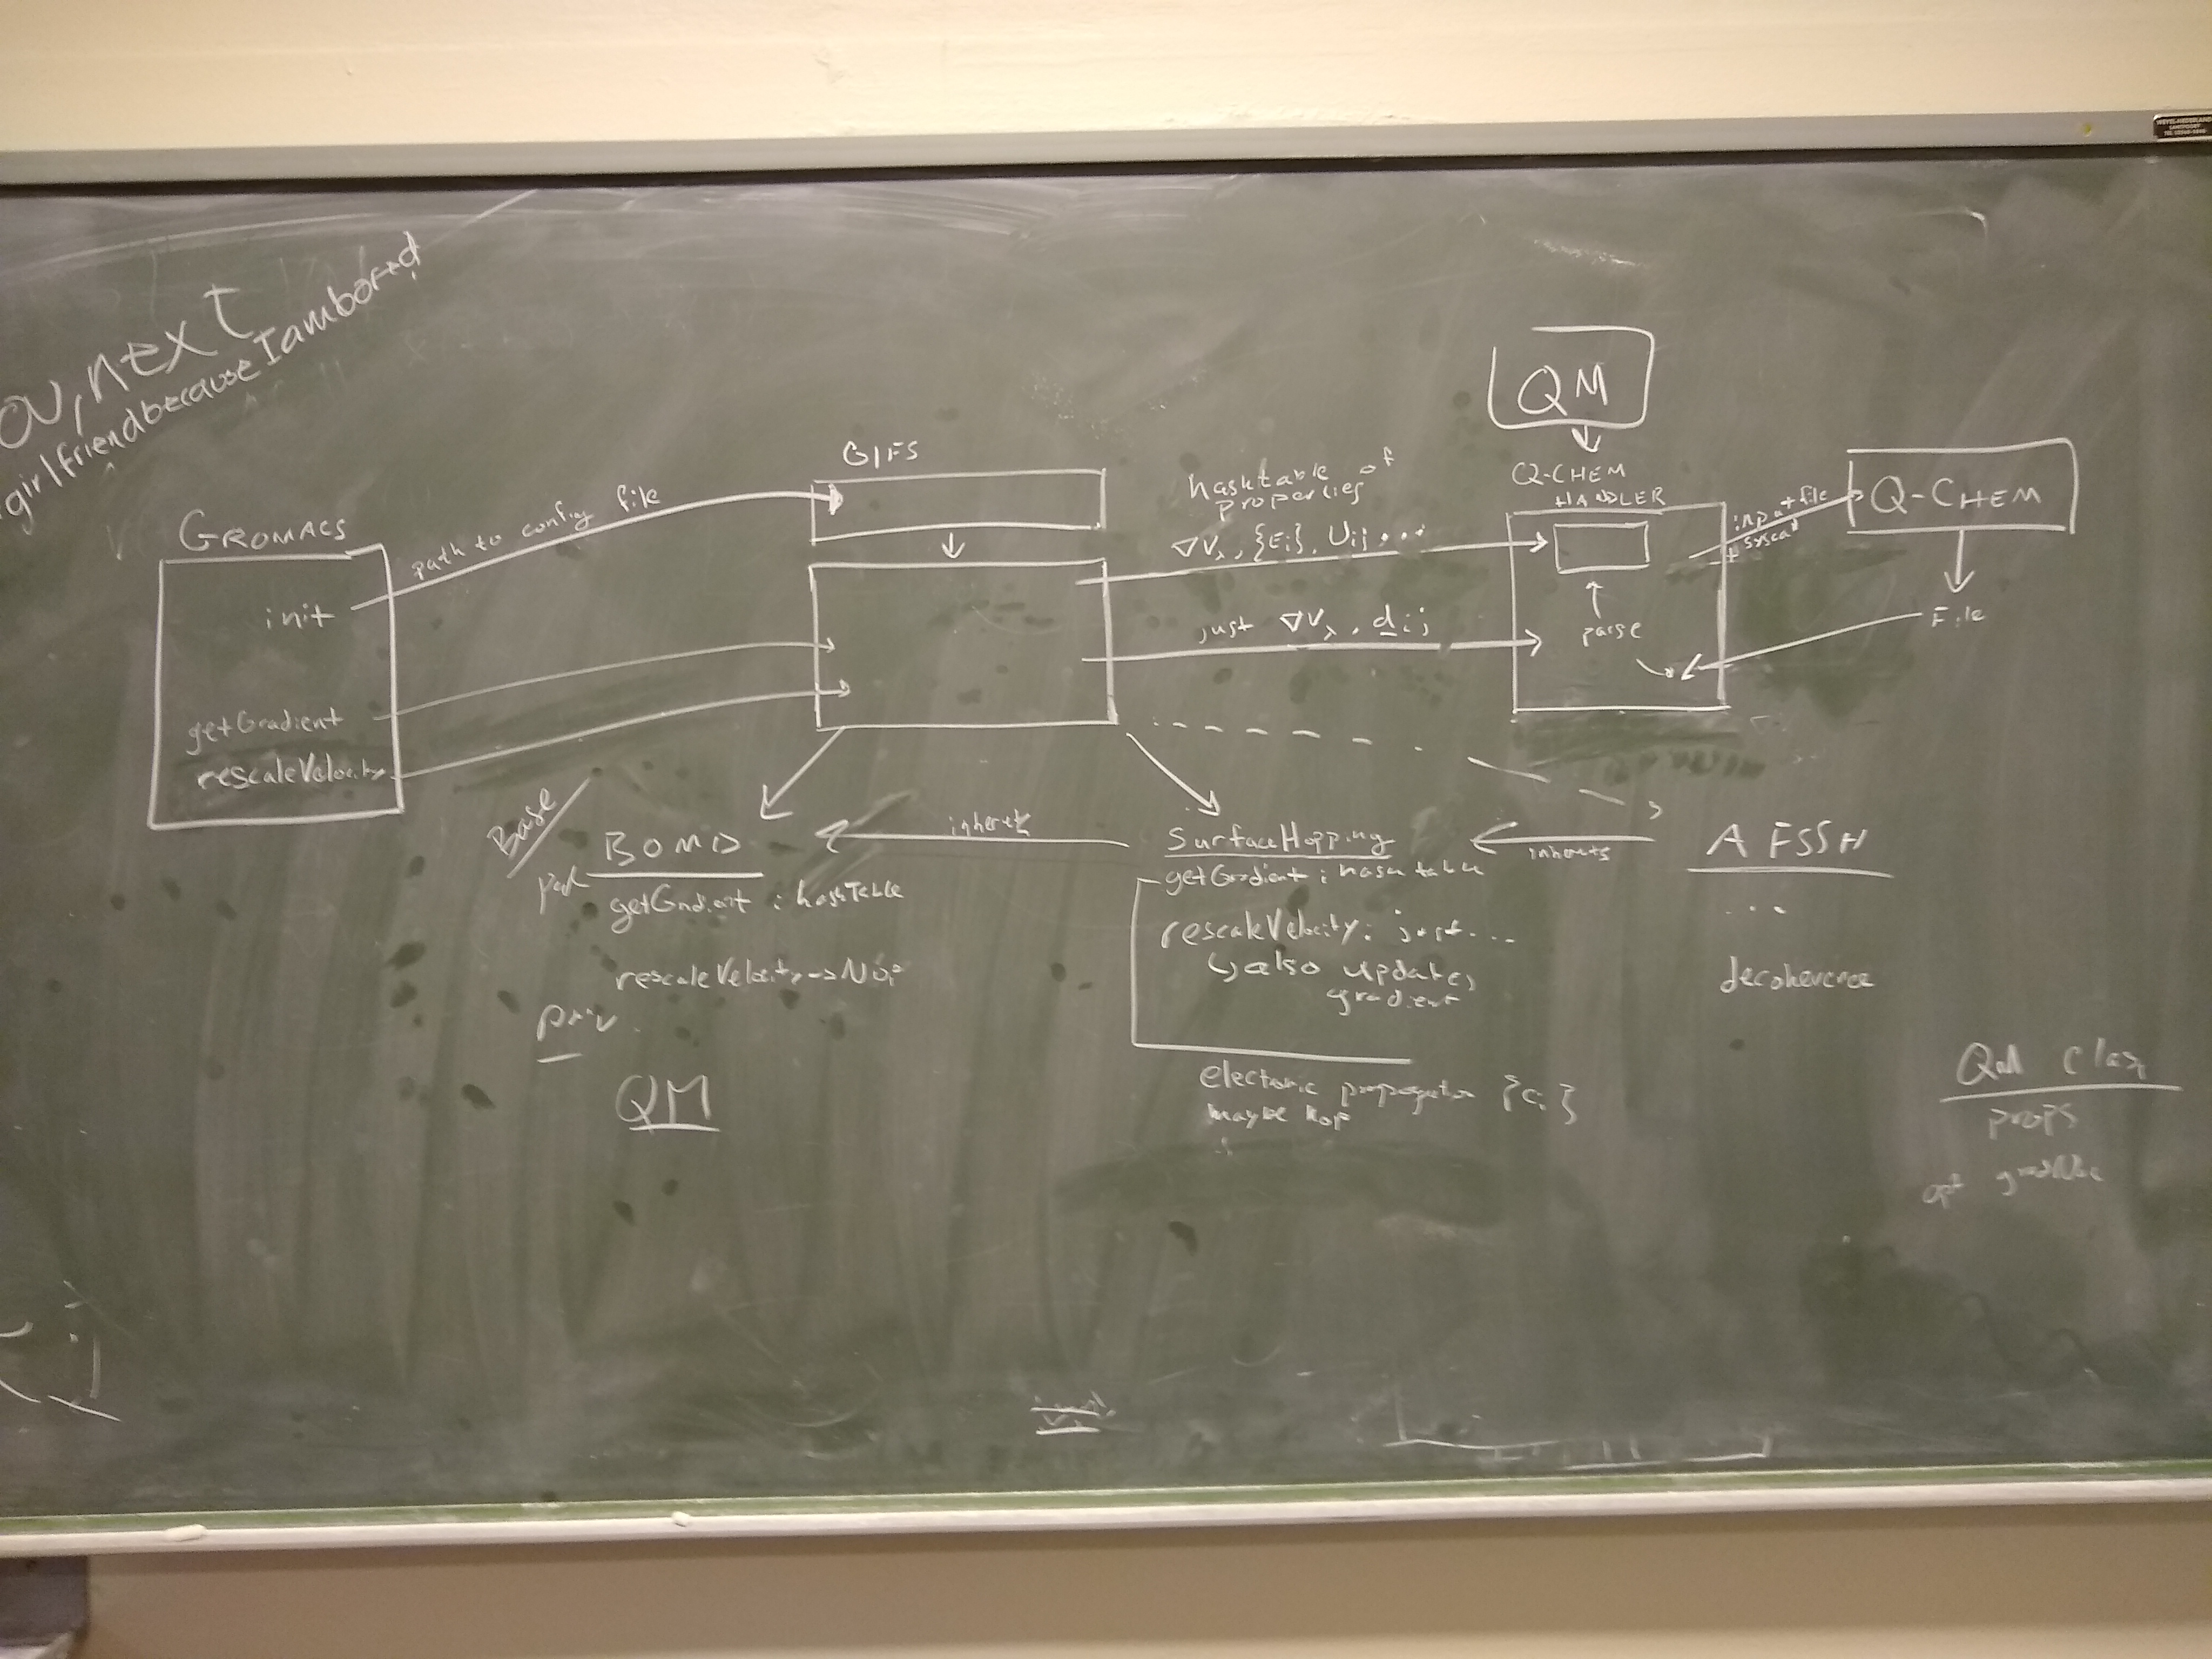 ou, next
girlfriendbecauseIambored
GROMACS
init
getGradient
rescaleVelocity
path to config file
GIFS
hashtable of
properties
∇Vλ, {Ei}, Uij ...
just ∇Vλ, dij
QM
Q-CHEM
HANDLER
parse
input file
+ syscall
Q-CHEM
File
Base
BOMD
getGradient : hashTable
rescaleVelocity -> Nop
priv
QM
inherits
SurfaceHopping
getGradient : hash table
rescaleVelocity: just...
↳ also updates
gradient
electronic propagator {ci}
maybe hop
inherits
AFSSH
...
decoherence
QM Class
props
opt